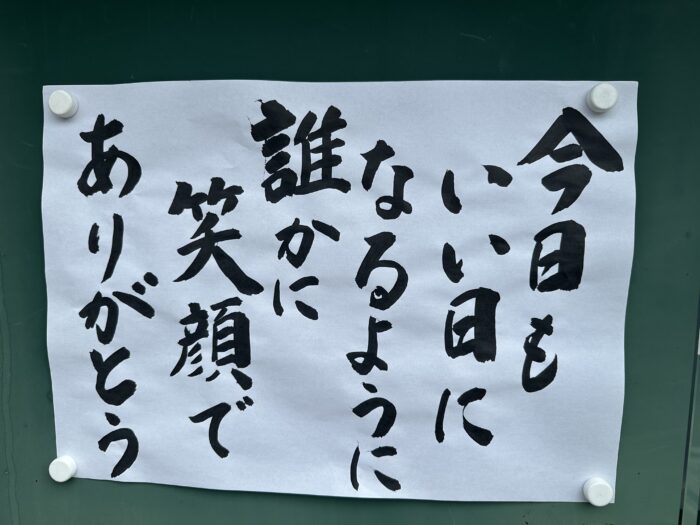 今日も
いい日に
なるように
誰かに
笑顔で
ありがとう